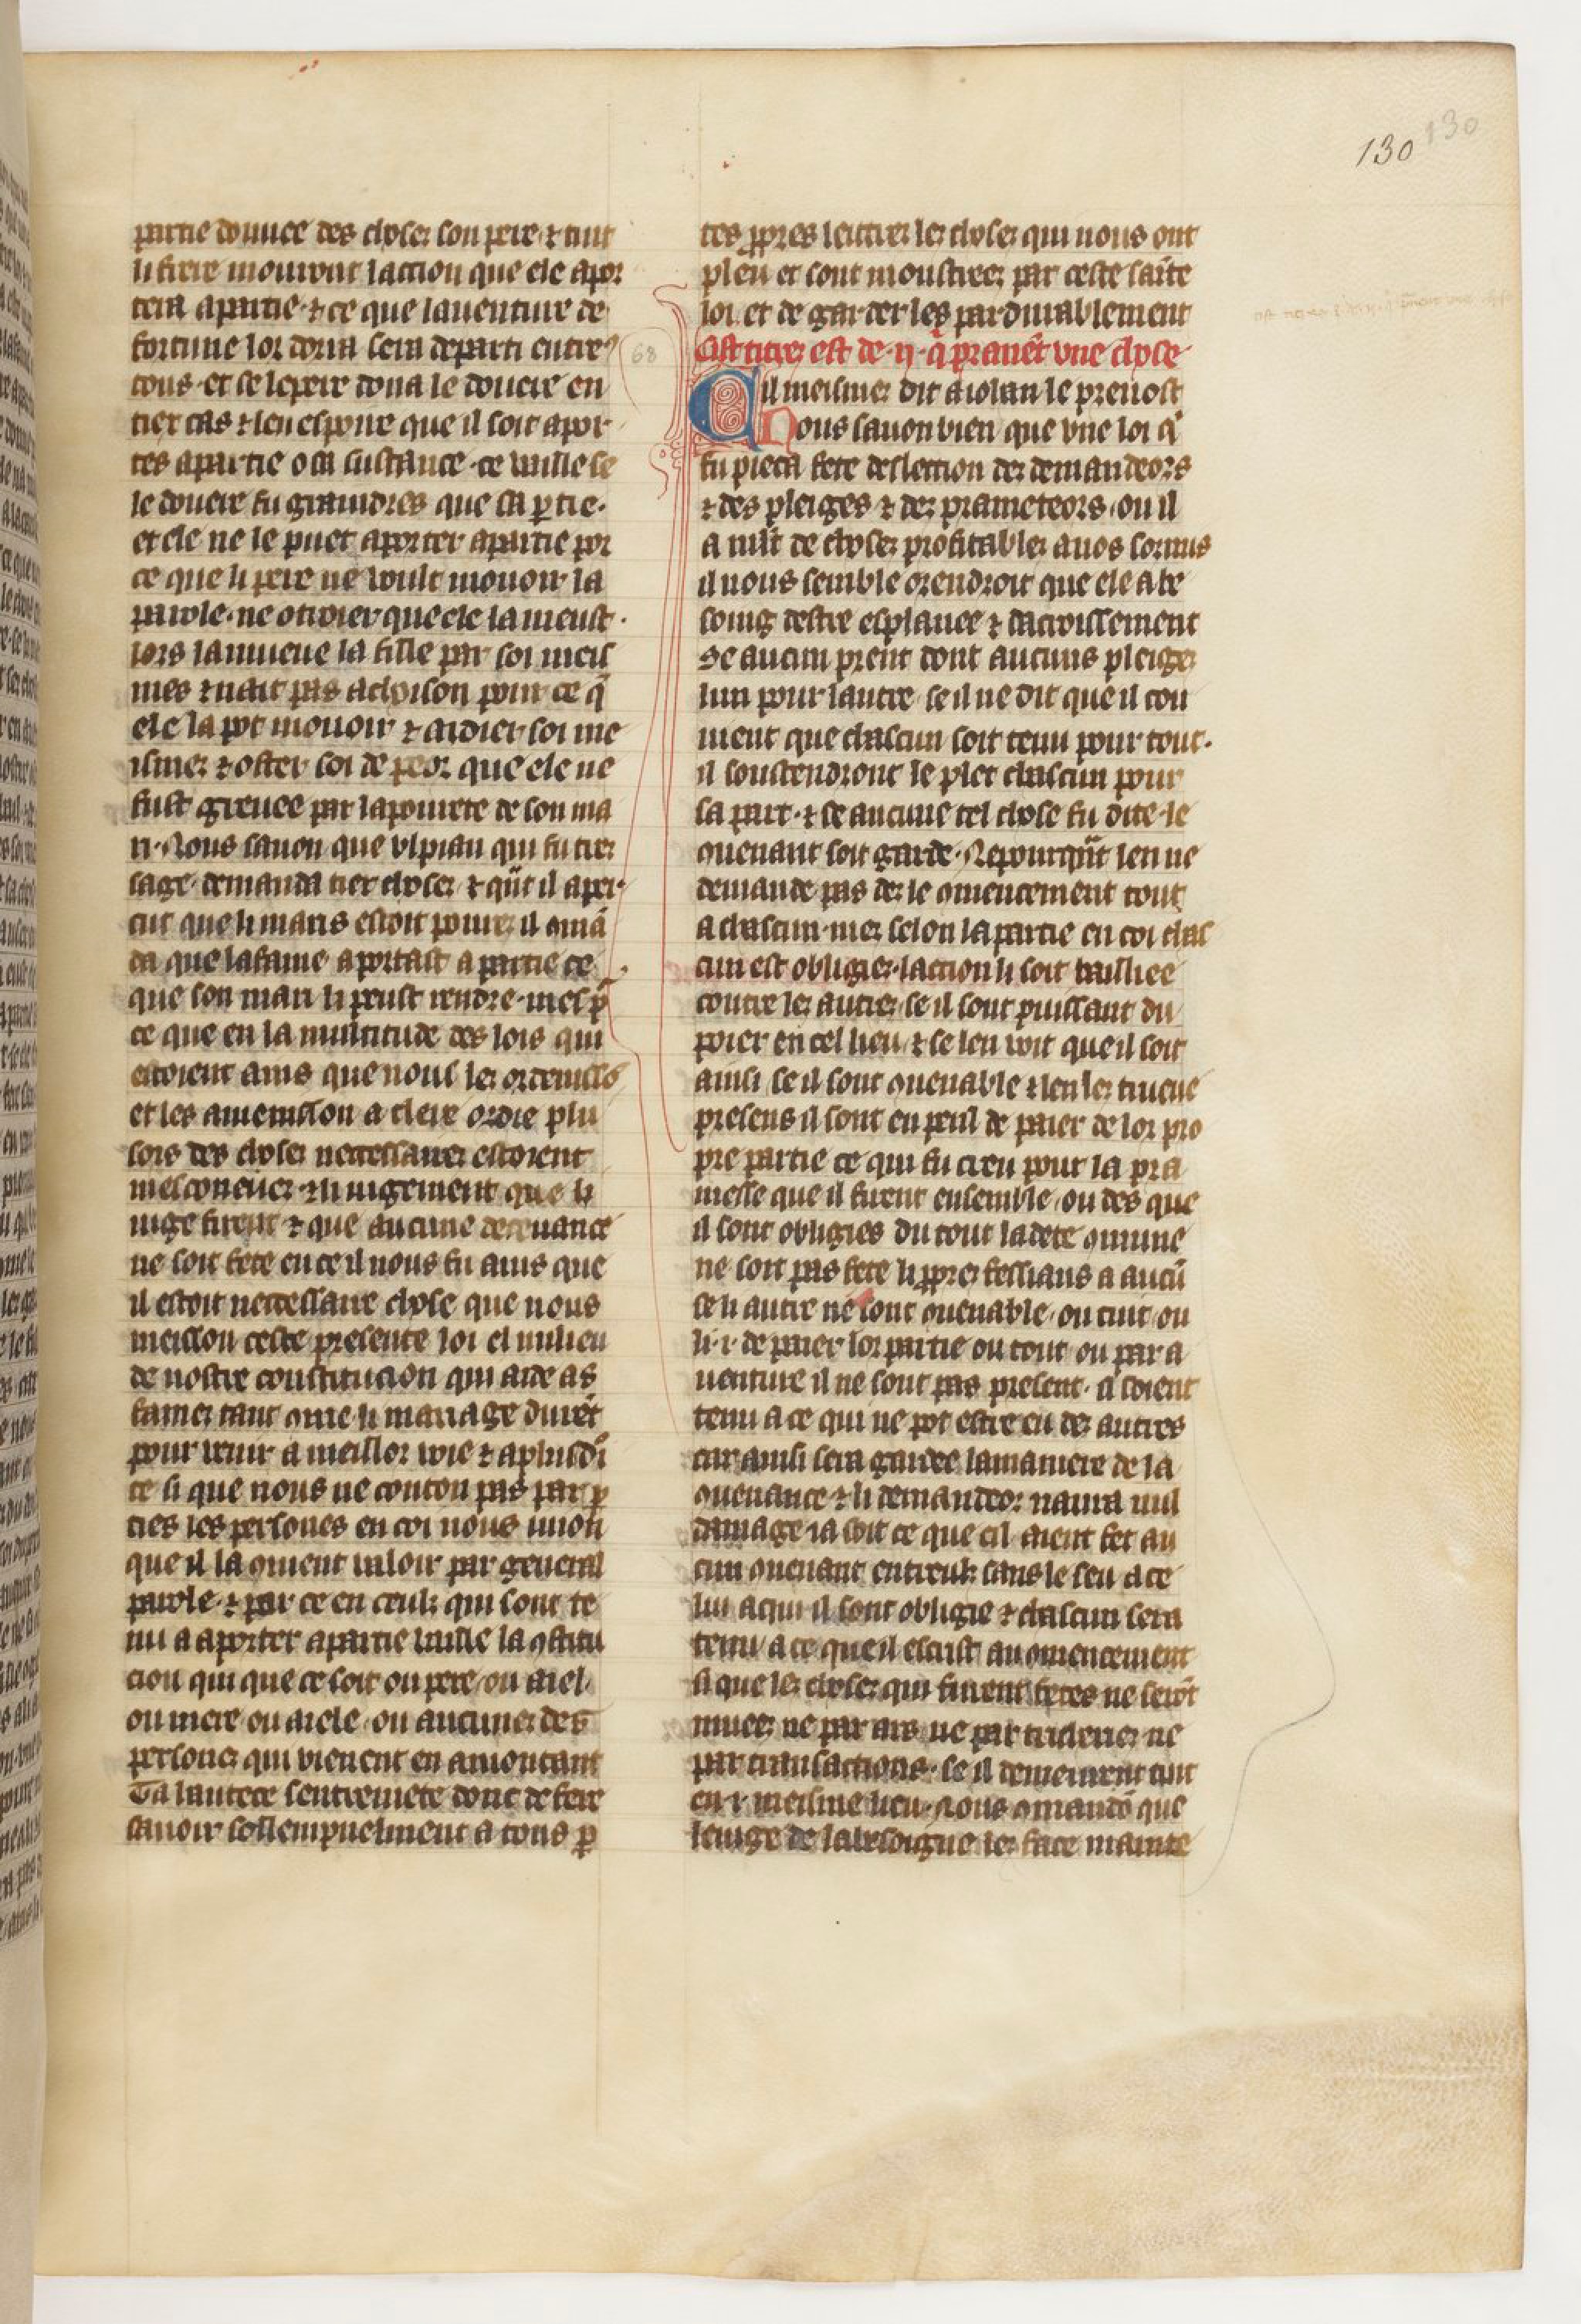 130 130
partie donnee des choses son pere ⁊ tuit
li frere mouront laccion que ele apor
tera a partie ⁊ ce que lauenture de
fortune lor dorra sera departi entre
tous et se le pere dona le doueire en
tier cas ⁊ len espoire que il soit apor
tes a partie o sa sustance ce vuille se
le doueire fu graindres que sa ꝑtie.
et ele ne le puet aporter a partie por
ce que li pere ne voult mouoir la
parole. ne otroier que ele la meust.
lors la mueue la fille par soi meis
mes ⁊ nait pas achoison pour ce q̃
ele la pot mouoir ⁊ aidier soi me
ismes ⁊ oster soi de peor que ele ne
fust greuee par la pourete de son ma
ri. Nous sauon que vlpian qui fu tres
sage demanda tiex choses ⁊ qñt il aper
cut que li maris estoit poures il ꝯmã
da que la fame aportast a partie ce
que son mari li peust rendre. mes
ce que en la multitude des lois qui
estoient ains que nous les
et les amenisson a clere ordre plu
sors des choses necessaires estoient
mesconeues ⁊ li iugement que li
iuge firent ⁊ que aucune
ne soit fete en ce il nous fu auis que
il estoit necessaire chose que nous
meisson ceste presente loi el milieu
de nostre constitucion qui aide as
fames tant ꝯme li mariage durẽt
pour venir a meillor voie ⁊ a plus
te si que nous ne conton pas par ꝑ
ties les persones en coi nous
que il la ꝯuient valoir par general
parole. ⁊ par ce en ceuls qui sont te
nu a aporter a partie vuille la ꝯstitu
cion qui que ce soit ou pere ou aiel
ou mere ou aiele ou aucunes des
persones qui vienent en amontant
Ta hautece sentremete donc de fere
sauoir sollempnelment a tous ꝑ
tes ꝓpres lettres les choses qui nous ont
pleu et sont moustrees par ceste saĩte
loi. et de garder les pardurablement
68
Cist titres est de .ij. q̃ prametẽt vne chose
Cil meismes dit a iohan le preuost
Nous sauon bien que vne loi q̃
fu pieca fete deslection des demandeors
⁊ des pleiges ⁊ des prameteors. ou il
a mĩt de choses profitables a uos
il nous semble orendroit que ele a be
soing destre esplanee ⁊ dacroissement
Se aucun prent dont aucuns pleiges
lun pour lautre se il ne dit que il cou
uient que chascun soit tenu pour tout.
il soustendront le plet chascun pour
sa part. ⁊ se aucune tel chose fu dite le
ꝯuenant soit garde. Nepourqñt len ne
demande pas des le ꝯmencement tout
a chascun. mes selon la partie en coi chas
cun est obligies. laction li soit bailliee
contre les autres se il sont puissant du
poier en cel lieu. ⁊ se len voit que il soit
ainsi. se il sont ꝯuenable ⁊ len les trueue
presens il sont en peril de paier de lor pro
pre partie ce qui fu creu pour la pra
messe que il firent ensemble. ou des que
il sont obligies du tout la dete ꝯmune
ne soit pas fete li ꝓpres fessians a aucũ
se li autre ne sont ꝯuenable. ou tuit ou
li .i. de paier lor partie ou tout ou par a
uenture il ne sont pas present. cil soient
tenu a ce qui ne pot estre eu des autres
car ainsi sera gardee la maniere de la
ꝯuenance ⁊ li demandeor naura nul
damage ia soit ce que cil aient fet au
cun ꝯuenant entreuls sans le seu a ce
lui a qui il sont obligie ⁊ chascun sera
tenu a ce que il au ꝯmencement
si que les choses qui furent fetes ne serõt
muees ne par ars ne par tricheries ne
par transactions. se il demeurent tuit
en .i. meisme lieu. Nous ꝯmandõ que
le iuge de la besoigne les face mainte